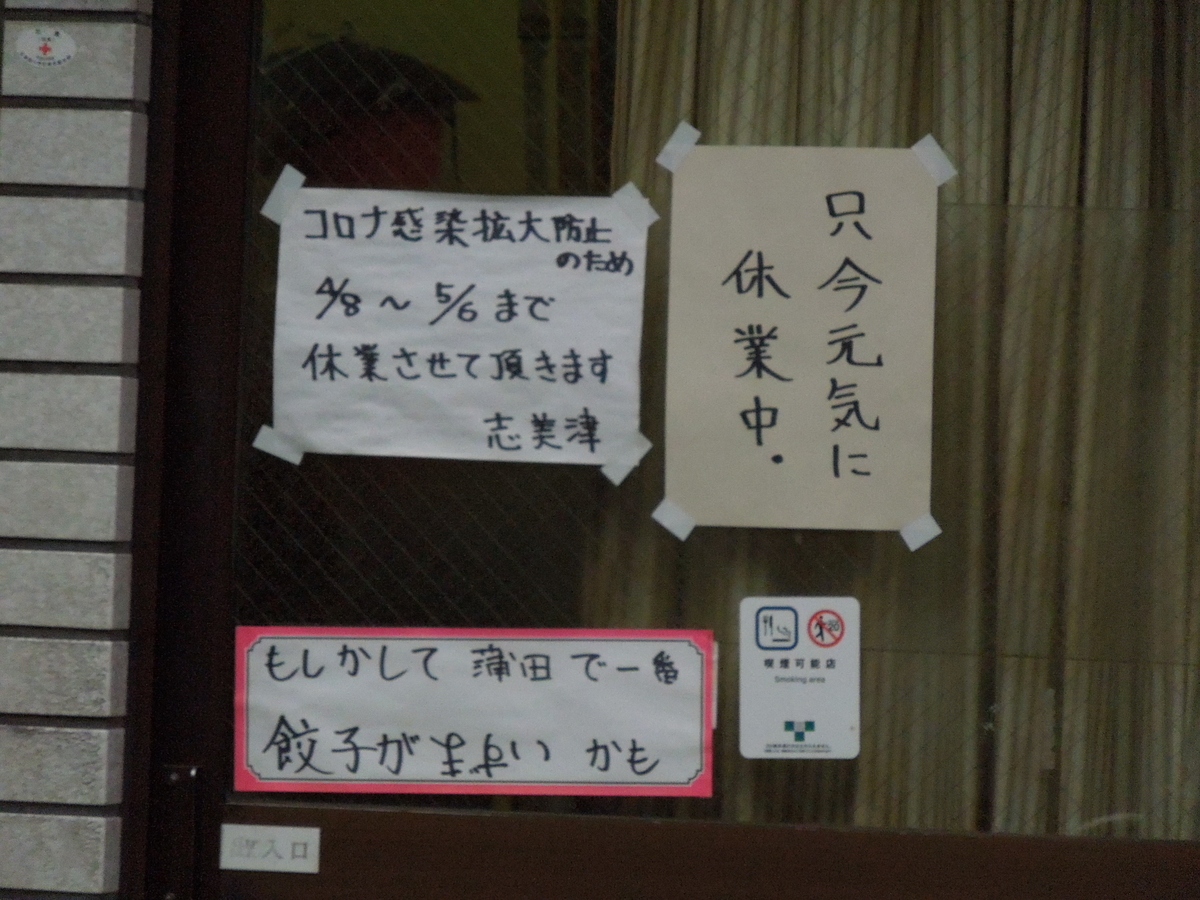 コロナ感染拡大防止
のため
4/8～5/6まで
休業させて頂きます
志美津
只今元気に
休業中.
もしかして 蒲田で一番
餃子が かも
喫煙可能店
Smoking area
入口